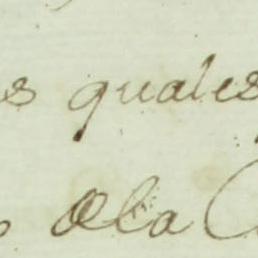 s quales
dela